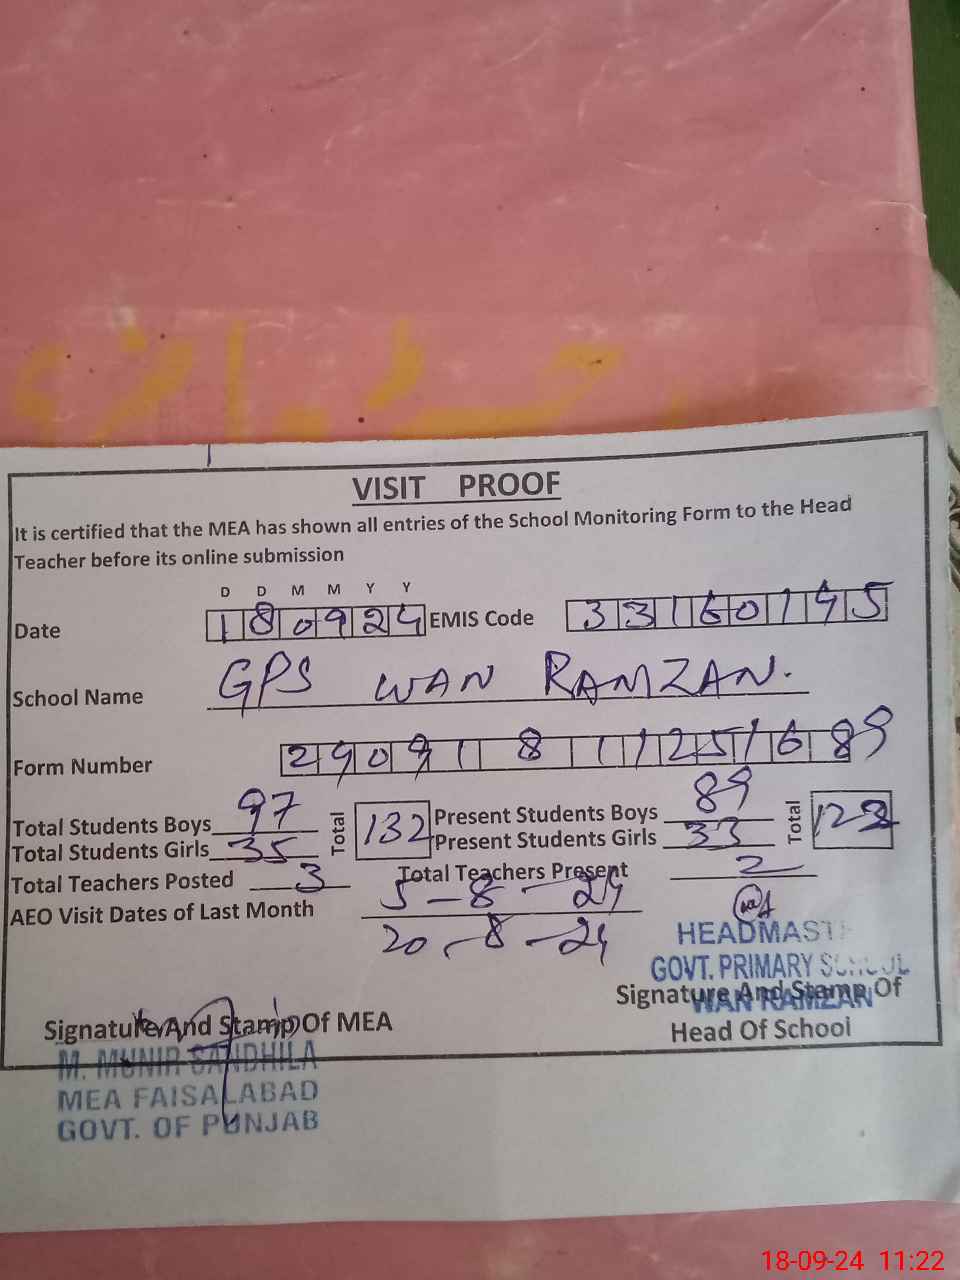 VISIT PROOF
It is certified that the MEA has shown all entries of the School Monitoring Form to the Head
Teacher before its online submission
D D M M Y Y
Date 180924 EMIS Code 33160145
School Name GPS WAN RAMZAN.
Form Number
Total Students Boys 97 Total 132 Present Students Boys 89 Total 122
Total Students Girls 35 Present Students Girls 33
Total Teachers Posted 3 Total Teachers Present 2
AEO Visit Dates of Last Month 5-8-24
20-8-24
HEADMAST
GOVT. PRIMARY SCHOOL
WAN RAMZAN
Signature And Stamp Of
Head Of School
Signature And Stamp Of MEA
M. MUNIR SANDHILA
MEA FAISALABAD
GOVT. OF PUNJAB
18-09-24 11:22